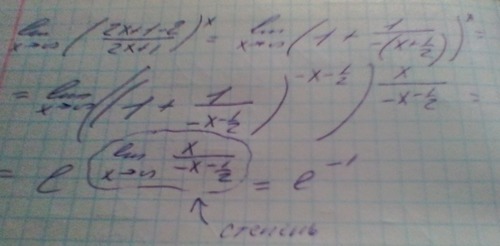 lim x→∞ ((2x+1-2)/(2x+1))^x = lim x→∞ (1 + 1/(-(x+1/2)))^x =
= lim x→∞ ((1 + 1/(-x-1/2))^(-x-1/2))^(x/(-x-1/2)) =
= e^(lim x→∞ x/(-x-1/2)) = e^(-1)
степень